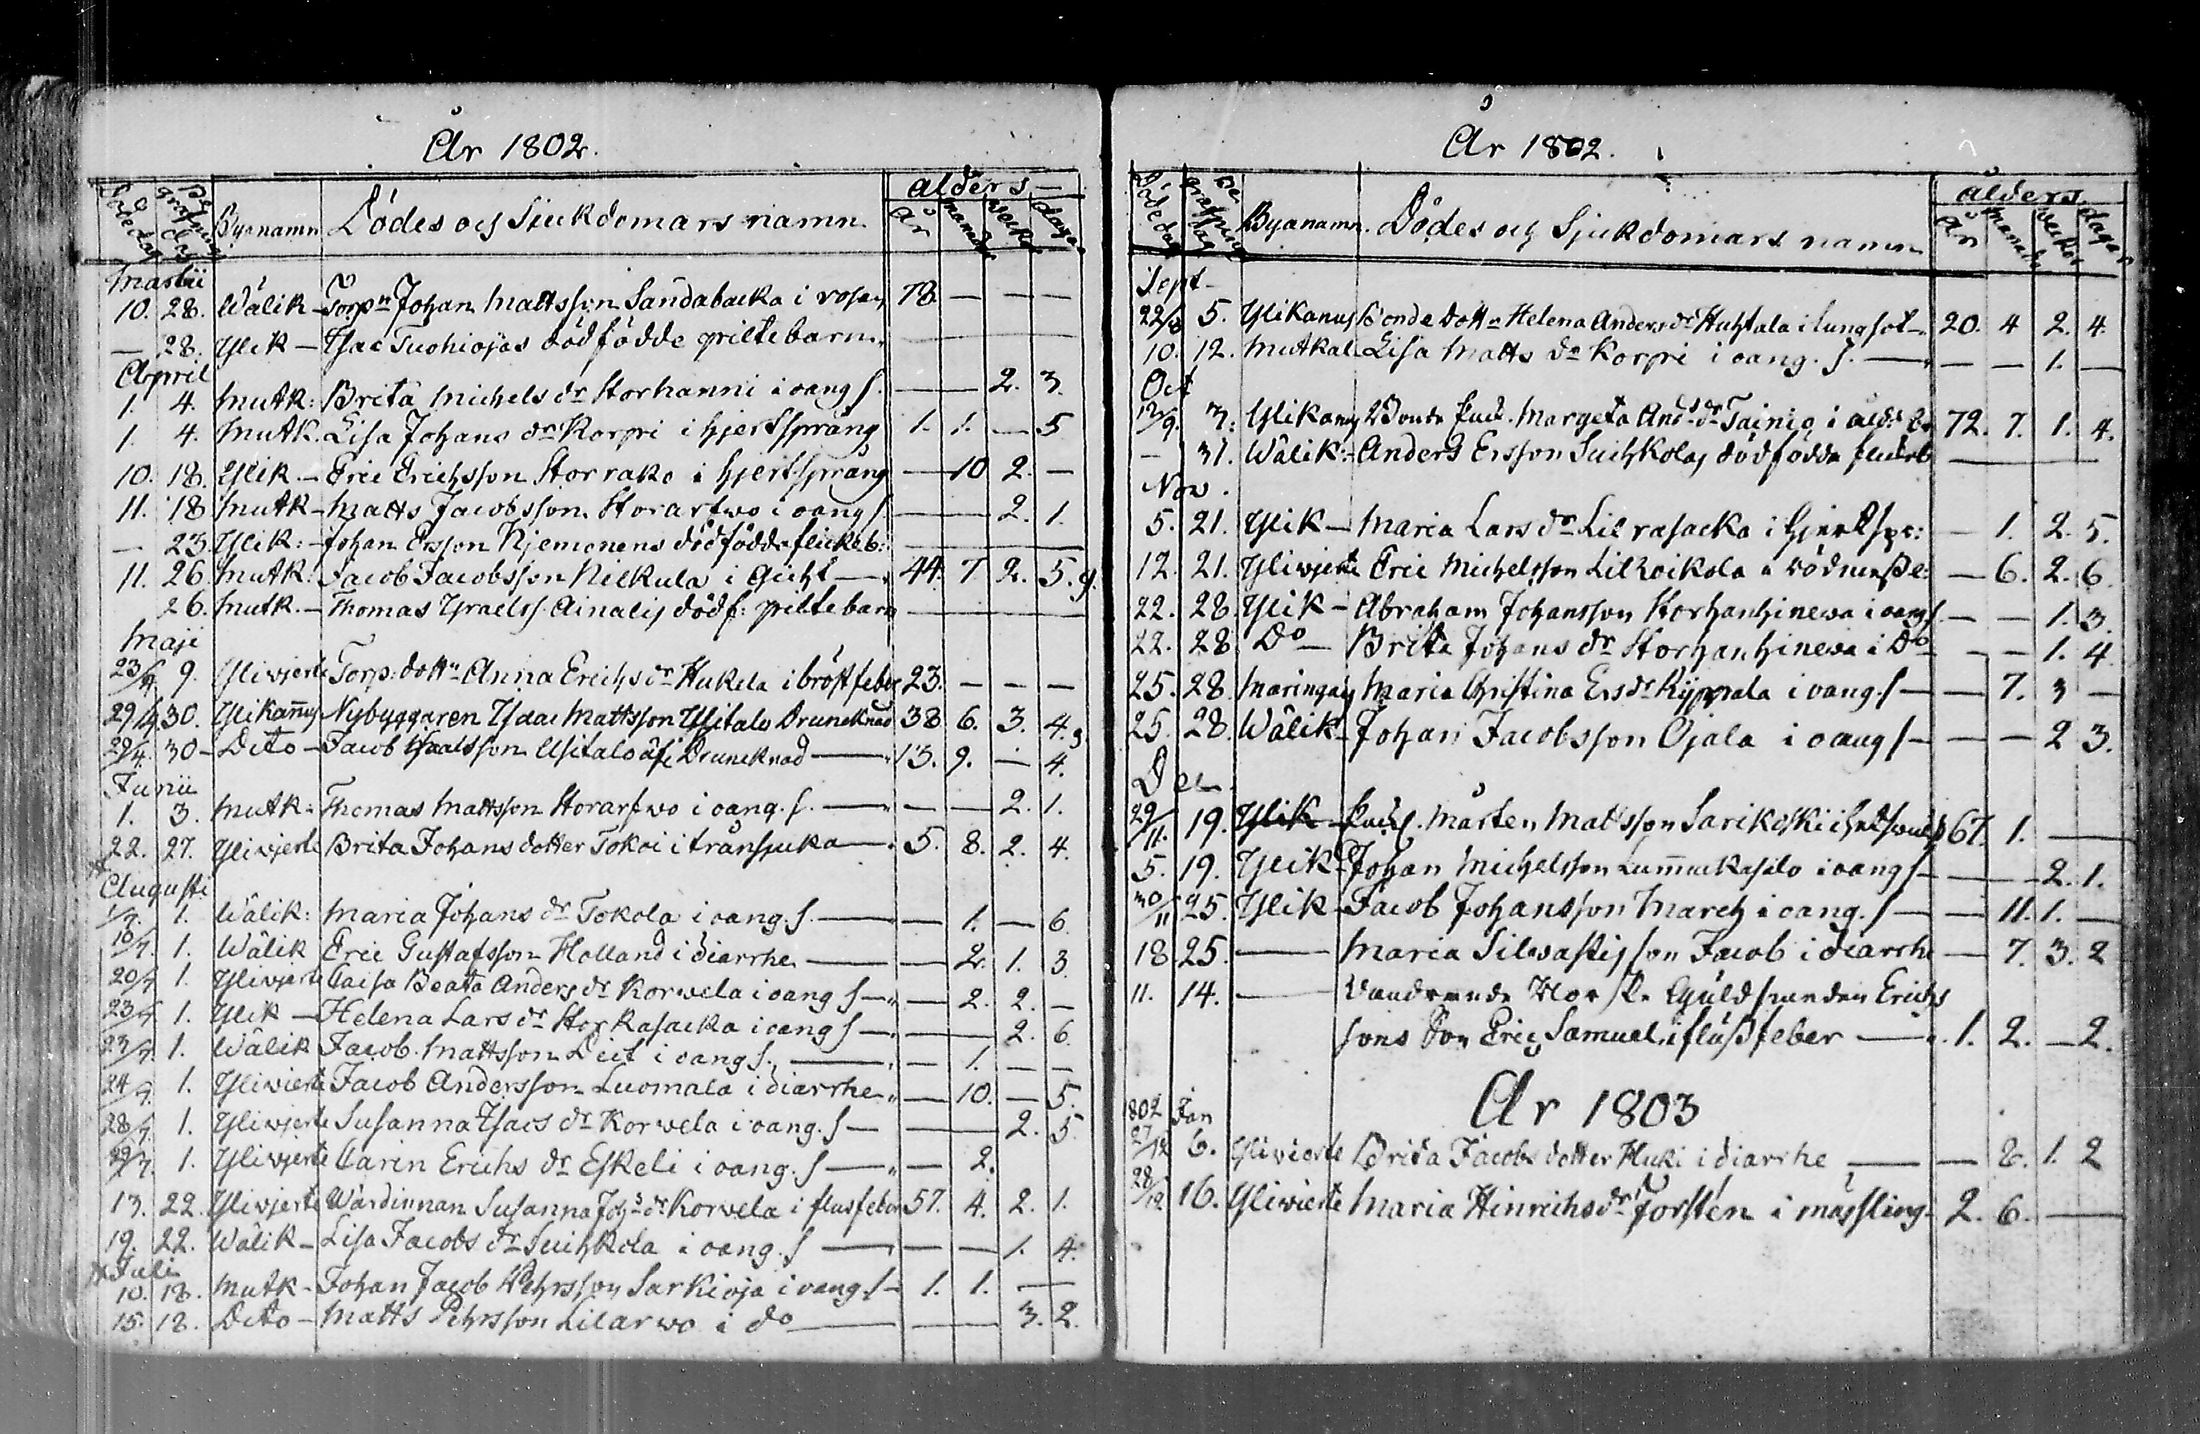 År 1802.
Döde dag Begrafnings dag Byanamn Dödes och Sjukdomars namn ålders År månader Veckor dagar
Martii
10. 28. Wälik – Torpn Johan Mattsson Sandabacka i rosen 78 — — —
— 28. Ylik – Isac Tuohiojas dödfödde piltebarn
April
1. 4. Mutk: Brita Michels dr Storhanni i oäng s. — — 2. 3.
1. 4. Mutk. Lisa Johans dr Korpi i hjertsprång 1. 1. — 5
10. 18. Ylik – Eric Erichsson Storrako i hjertsprång — 10 2. —
11. 18 Mutk – Matts Jacobsson Storarfwo i oäng s. — — 2. 1.
— 23 Ylik: – Johan Ersson Njemonens dödfödde flickeb:
11. 26. Mutk: Jacob Jacobsson Nilkula i Gickt — 44. 7 2. 5.
26. Mutk. – Thomas Ysraelss. Ainalis dödf: piltebarn
Maji
23/4 9. Ylivjerte Torp: dottn Anna Erichs dr Hukela i bröstfeber 23. — — —
29/4 30. Ylikannus Nybyggaren Isaac Mattsson Ylitalo Drunknad 38 6. 3. 4.
29/4. 30 – Dito – Jacob Isaalsson Ylitalo äfv Drunknad — 13. 9. — 4.
Junii
1. 3. Mutk – Thomas Mattsson Storarfwo i oäng. s. — — — 2. 1.
22. 27. Ylivjerte Brita Johans dotter Tokoi i trånsjuka — 5. 8. 2. 4.
Augusti
1/7. 1. Wälik: Maria Johans dr Tokola i oäng. s. — — 1. — 6.
10/7. 1. Wälik Eric Gustafsson Holland i diarrhe — — 2. 1. 3.
20/7 1. Ylivjerte Caisa Beata Anders dr Korwela i oäng s — — 2. 2. —
23/7 1. Ylik – Helena Lars dr Storkasacka i oäng s — — — 2. 6.
23/7. 1. Wälik Jacob Mattsson i oäng s. — — 1. — —
24/7 1. Ylivierte Jacob Andersson Luomala i diarrhe — — 10. — 5.
28/7 1. Ylivjerte Susanna Isacs dr Korwela i oäng. s — — — 2. 5.
29/7. 1. Ylivjerte Carin Erichs dr Eskeli i oäng. s — — 2.
13. 22. Ylivjerte Wärdinnan Susanna Johs dr Korvela i flusfeber 57. 4. 2. 1.
19. 22. Wälik – Lisa Jacobs dr Suihkola i oäng. s — — — 1. 4.
Juli
10. 18. Mutk – Johan Jacob Pehrsson Sarkioja i oäng s – 1. 1. —
15. 18. Dito – Matts Pehrsson Lilarwo i do — — 3. 2.
År 1802.
Döde dag Begrafnings dag Byanamn. Dödes och Sjukdomars namn ålders År Månader Veckor dagar
Sept –
22/8 5. Ylikanus Bonde Dottn Helena Anders dr Huhtala i lungsot – 20. 4 2. 4.
10. 12. Mutkal. Lisa Matts dr Korpi i oäng. s. — — — 1. —
Oct
12/9. 3. Ylikanus Bonde Enk. Margeta Ands dr Tainio i åld: 72. 7. 1. 4.
– 31. Wälik: – Anders Ersson Suihkolas dödfödda flickeb
Nov.
5. 21. Ylik – Maria Lars dr Lil rasacka i hjertspr: — 1. 2. 5.
12. 21. Ylivjerte Eric Michelsson Lilkoikola i — 6. 2. 6.
22. 28. Ylik – Abraham Johansson Storhanhinewa i oäng s. — — 1. 3.
22. 28 Do — Brita Johans dr Storhanhinewa i Do — — 1. 4.
25. 28. Maria Christina Ers dr Kyppala i oäng. s — — 7. 3 —
25. 28. Wälik – Johan Jacobsson Ojala i oäng s — — — 2 3.
Dec
29/11. 19. Ylik – Mårten Matsson Sarikoski i 67. 1. —
5. 19. Ylik – Johan Michelsson Lummukasalo i oäng s — — — 2. 1.
30/11 25. Ylik – Jacob Johansson March i oäng. s — — 11. 1. —
18 25. — Maria Silvastis son Jacob i diarrhe — 7. 3. 2
11. 14. — Vandrande Erichs
sons Son Eric Samuel i flussfeber — 1. 2. — 2.
År 1803
1802 Jan
27/12 6. Ylivierte Brita Jacobs dotter Huki i diarrhe — — 8. 1. 2
28/12 16. Ylivierte Maria Hinrichs dr Torstén i mässling – 2. 6. —